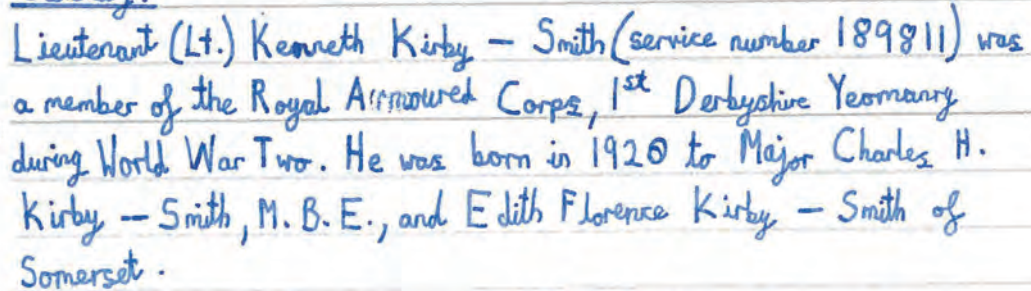 Lieutenant (Lt.) Kenneth Kirby – Smith (service number 189811) was
a member of the Royal Armoured Corps, 1st Derbyshire Yeomanry
during World War Two. He was born in 1920 to Major Charles H.
Kirby – Smith, M.B.E., and Edith Florence Kirby – Smith of
Somerset.